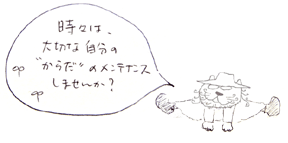 時々は、
大切な自分の
"からだ"のメンテナンス
しませんか?